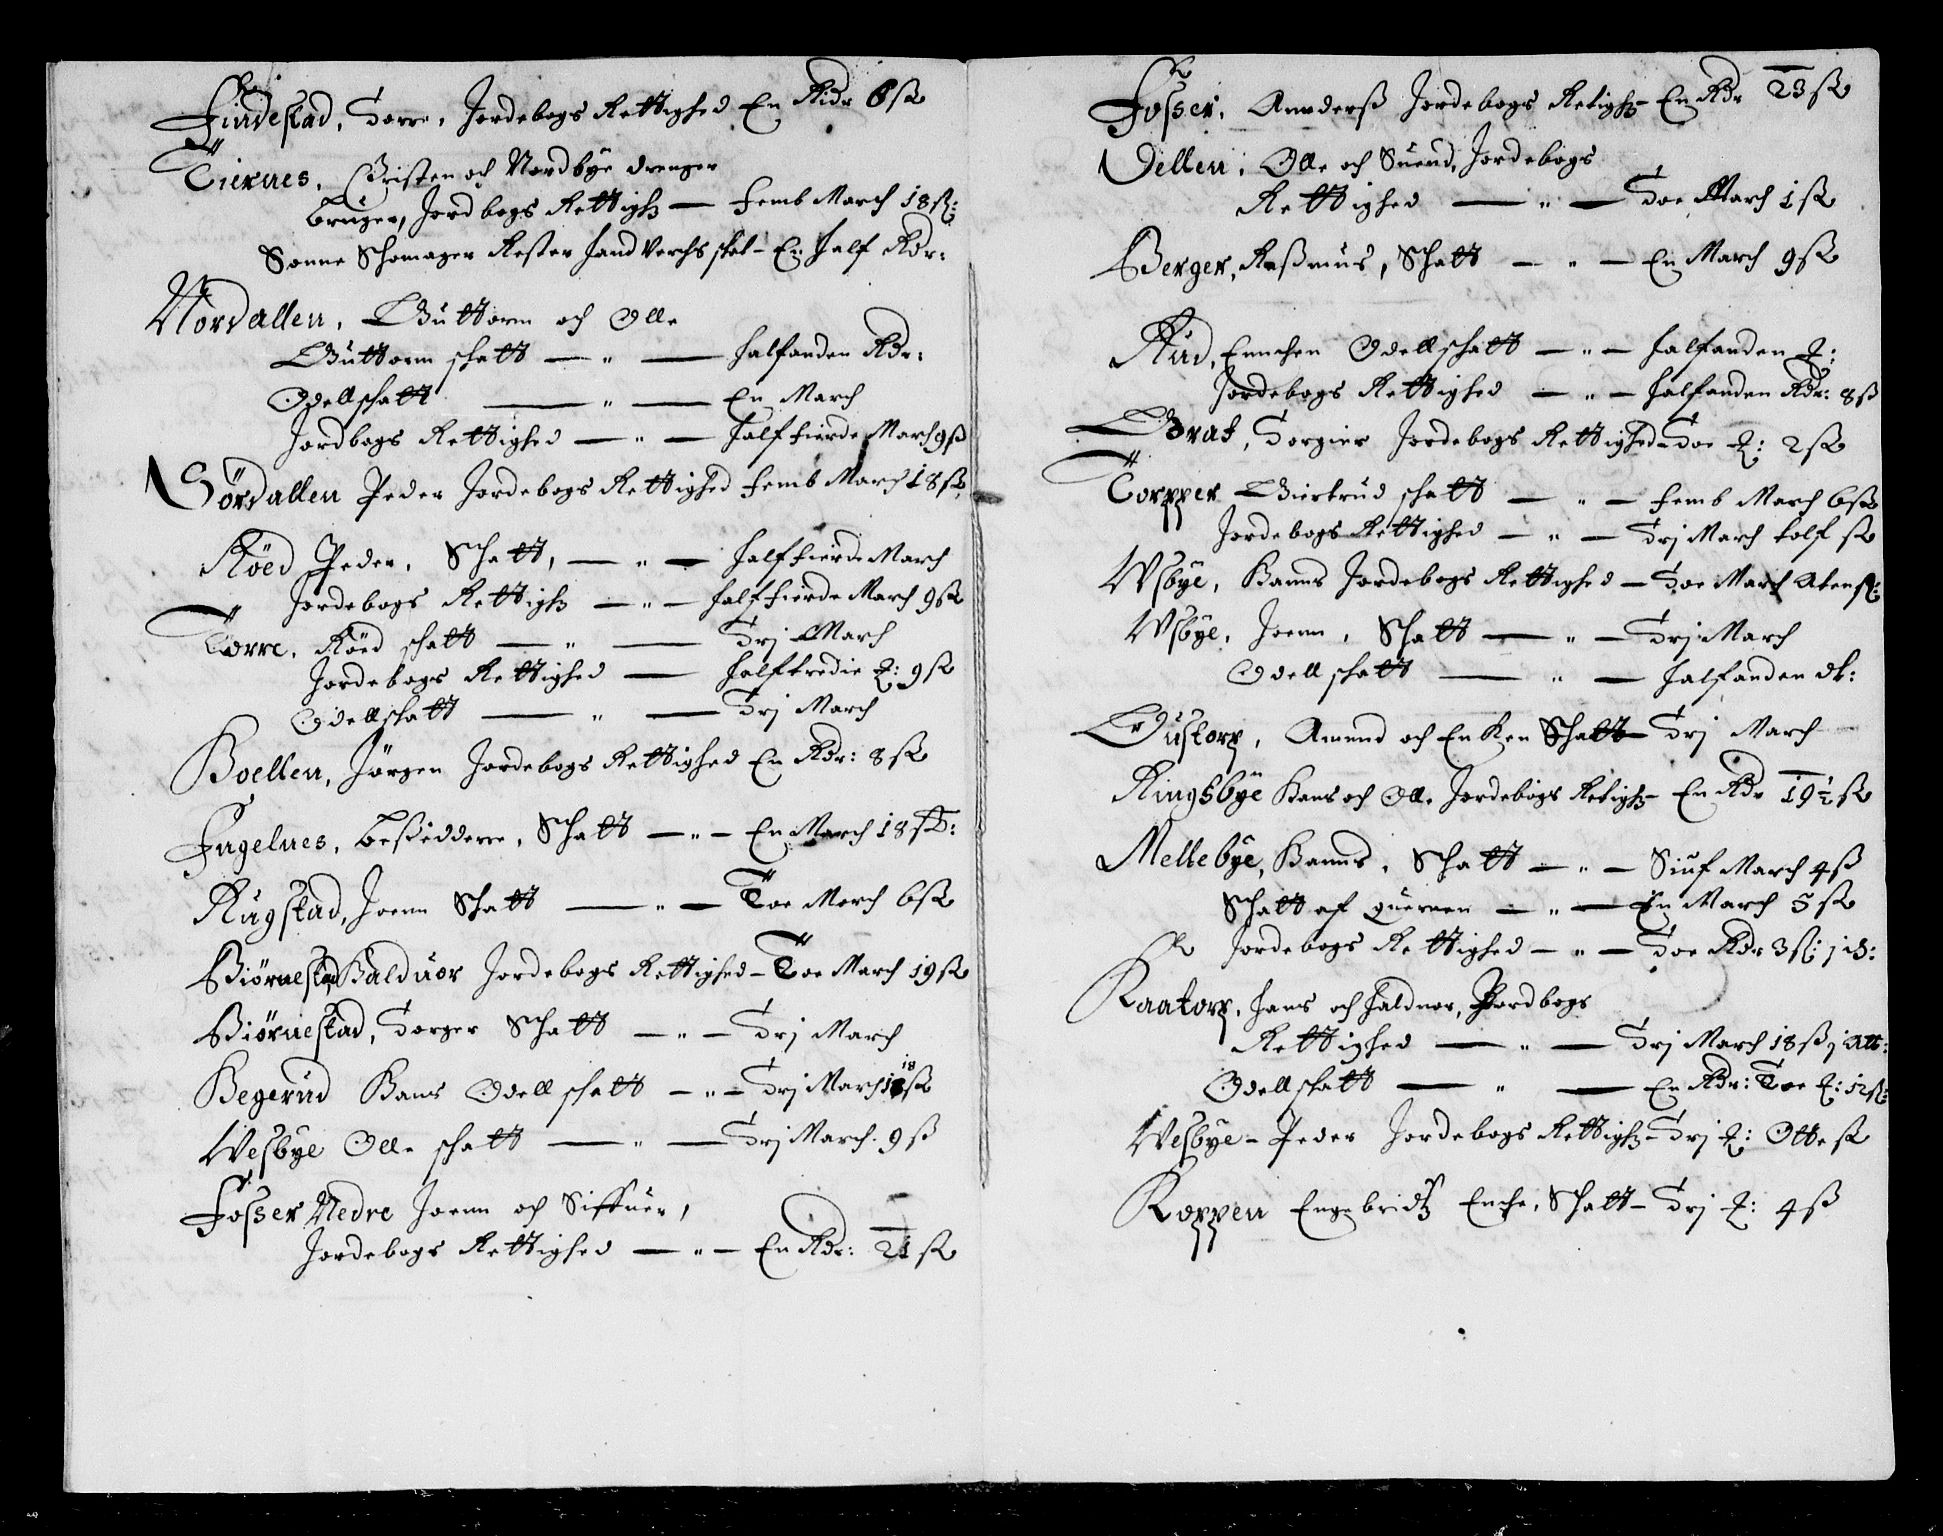 Findestad, Torre, Jordebogs Rettighed En Ridr 6 sk
Tiernes, Christen och Nordbye drenger
bruger, Jordbogs Rettigh — Femb March 18 sk:
Sonne Schomager Rester handverchs skat - En half Rdr:
Nordallen, Guttorm och Olle
Guttorm schatt — " — halfanden Rdr:
Odellschatt — " — En March
Jordbogs Rettighed — " — half fierde March 9 ß
Sördallen Peder Jordebogs Rettighed femb March 18 sk
Röed Peder, Schatt, — " — half fierde March
Jordebogs Rettigh — " — half fierde March 9 sk
Torre, Röed schatt — " — Trj March
Jordebogs Rettighed — halftredie : 9 sk
Odellschatt — " — Trj March
Boellen, Jörgen Jordebogs Rettighed En Rdr: 8 sk
Fugelnes, besidderre, Schatt — " — En March 18 sk:
Rugstad, Joenn Schatt — " — Toe March 6 sk
Biörnestad, Halduor Jordebogs Rettighed - Toe March 19 sk
Biörnestad, Torger Schatt — " — Trj March
Begerud Hans Odell schatt — " — Trj March 18 sk
Wesbye Olle schatt — " — Trj March. 9 ß
Fosser Nedre Joenn och Siffuer,
Jordebogs Rettighed — " — En Rdr: 21 sk
Fosser, Annderß Jordebogs Retigh - En Rdr 23 sk
Dellen, Olle och Suend, Jordebogs
Rettighed — " — Toe March 1 sk
Berger, Raßmus, Schatt — " — En March 9 sk
Rud, Ennchen Odellschatt — " — halfanden :
Jordebogs Rettighed — " — halfanden Rdr: 8 ß
Graf, Torgier Jordebogs Rettighed - Toe : 2 sk
Torpper Giertrud schatt — " — femb March 6 sk
Jordebogs Rettighed — " — Trj March tolf sk
Wsbye, Hanns Jordebogs Rettighed — Toe March Aten sk:
Wsbye, Joenn, Schatt — " — Trj March
Odell schatt — " — halfanden dl:
Gustorp, Amund och Enken Schatt - Trj March
Ringsbye Hans och Olle Jordebogs Retigh - En Rdr 19 ½ sk
Mellebye, Hanns, Schatt — " — Siuf March 4 ß
Schatt af quernen — " — En March 5 sk
Jordebogs Rettighed — " — Toe Rdr 3 sk: j :
Kaatorp, Hans och Halduor, Jordbogs
Rettighed — " — Trj March 18 ß j Alb:
Odell schatt — " — En Rdr: Toe : 12 sk:
Wesbye - Peder Jordebogs Rettigh - Trj : Otte sk
Koppen Engebridtz Enche, Schatt - Trj : 4 ß